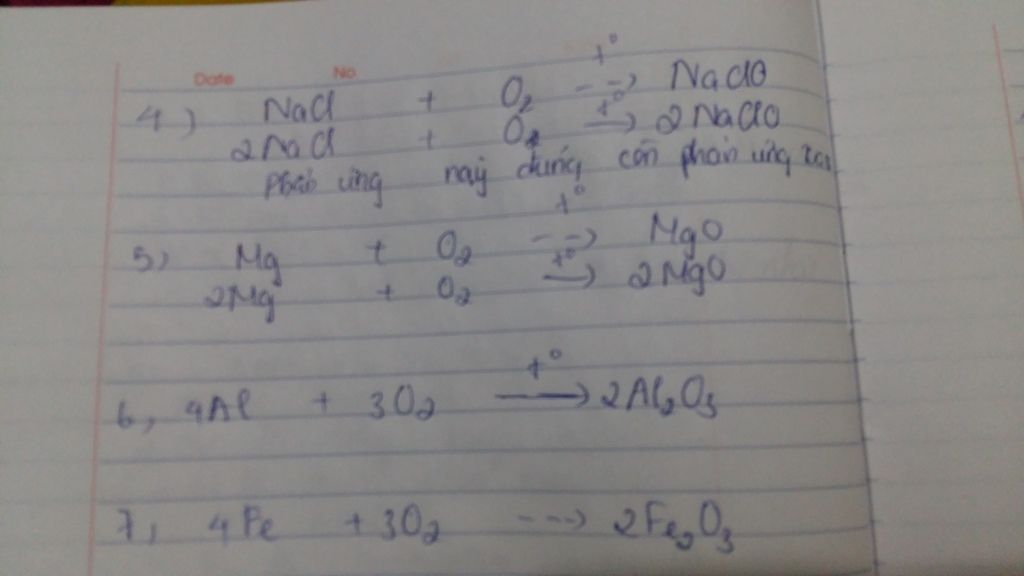 Date No
4) NaCl + O₂ --t°--> NaClO
2NaCl + O₂ --t°--> 2NaClO
phản ứng này đúng còn phản ứng
5) Mg + O₂ --t°--> MgO
2Mg + O₂ --t°--> 2MgO
6, 4Al + 3O₂ --t°--> 2Al₂O₃
7, 4Fe + 3O₂ ---> 2Fe₂O₃